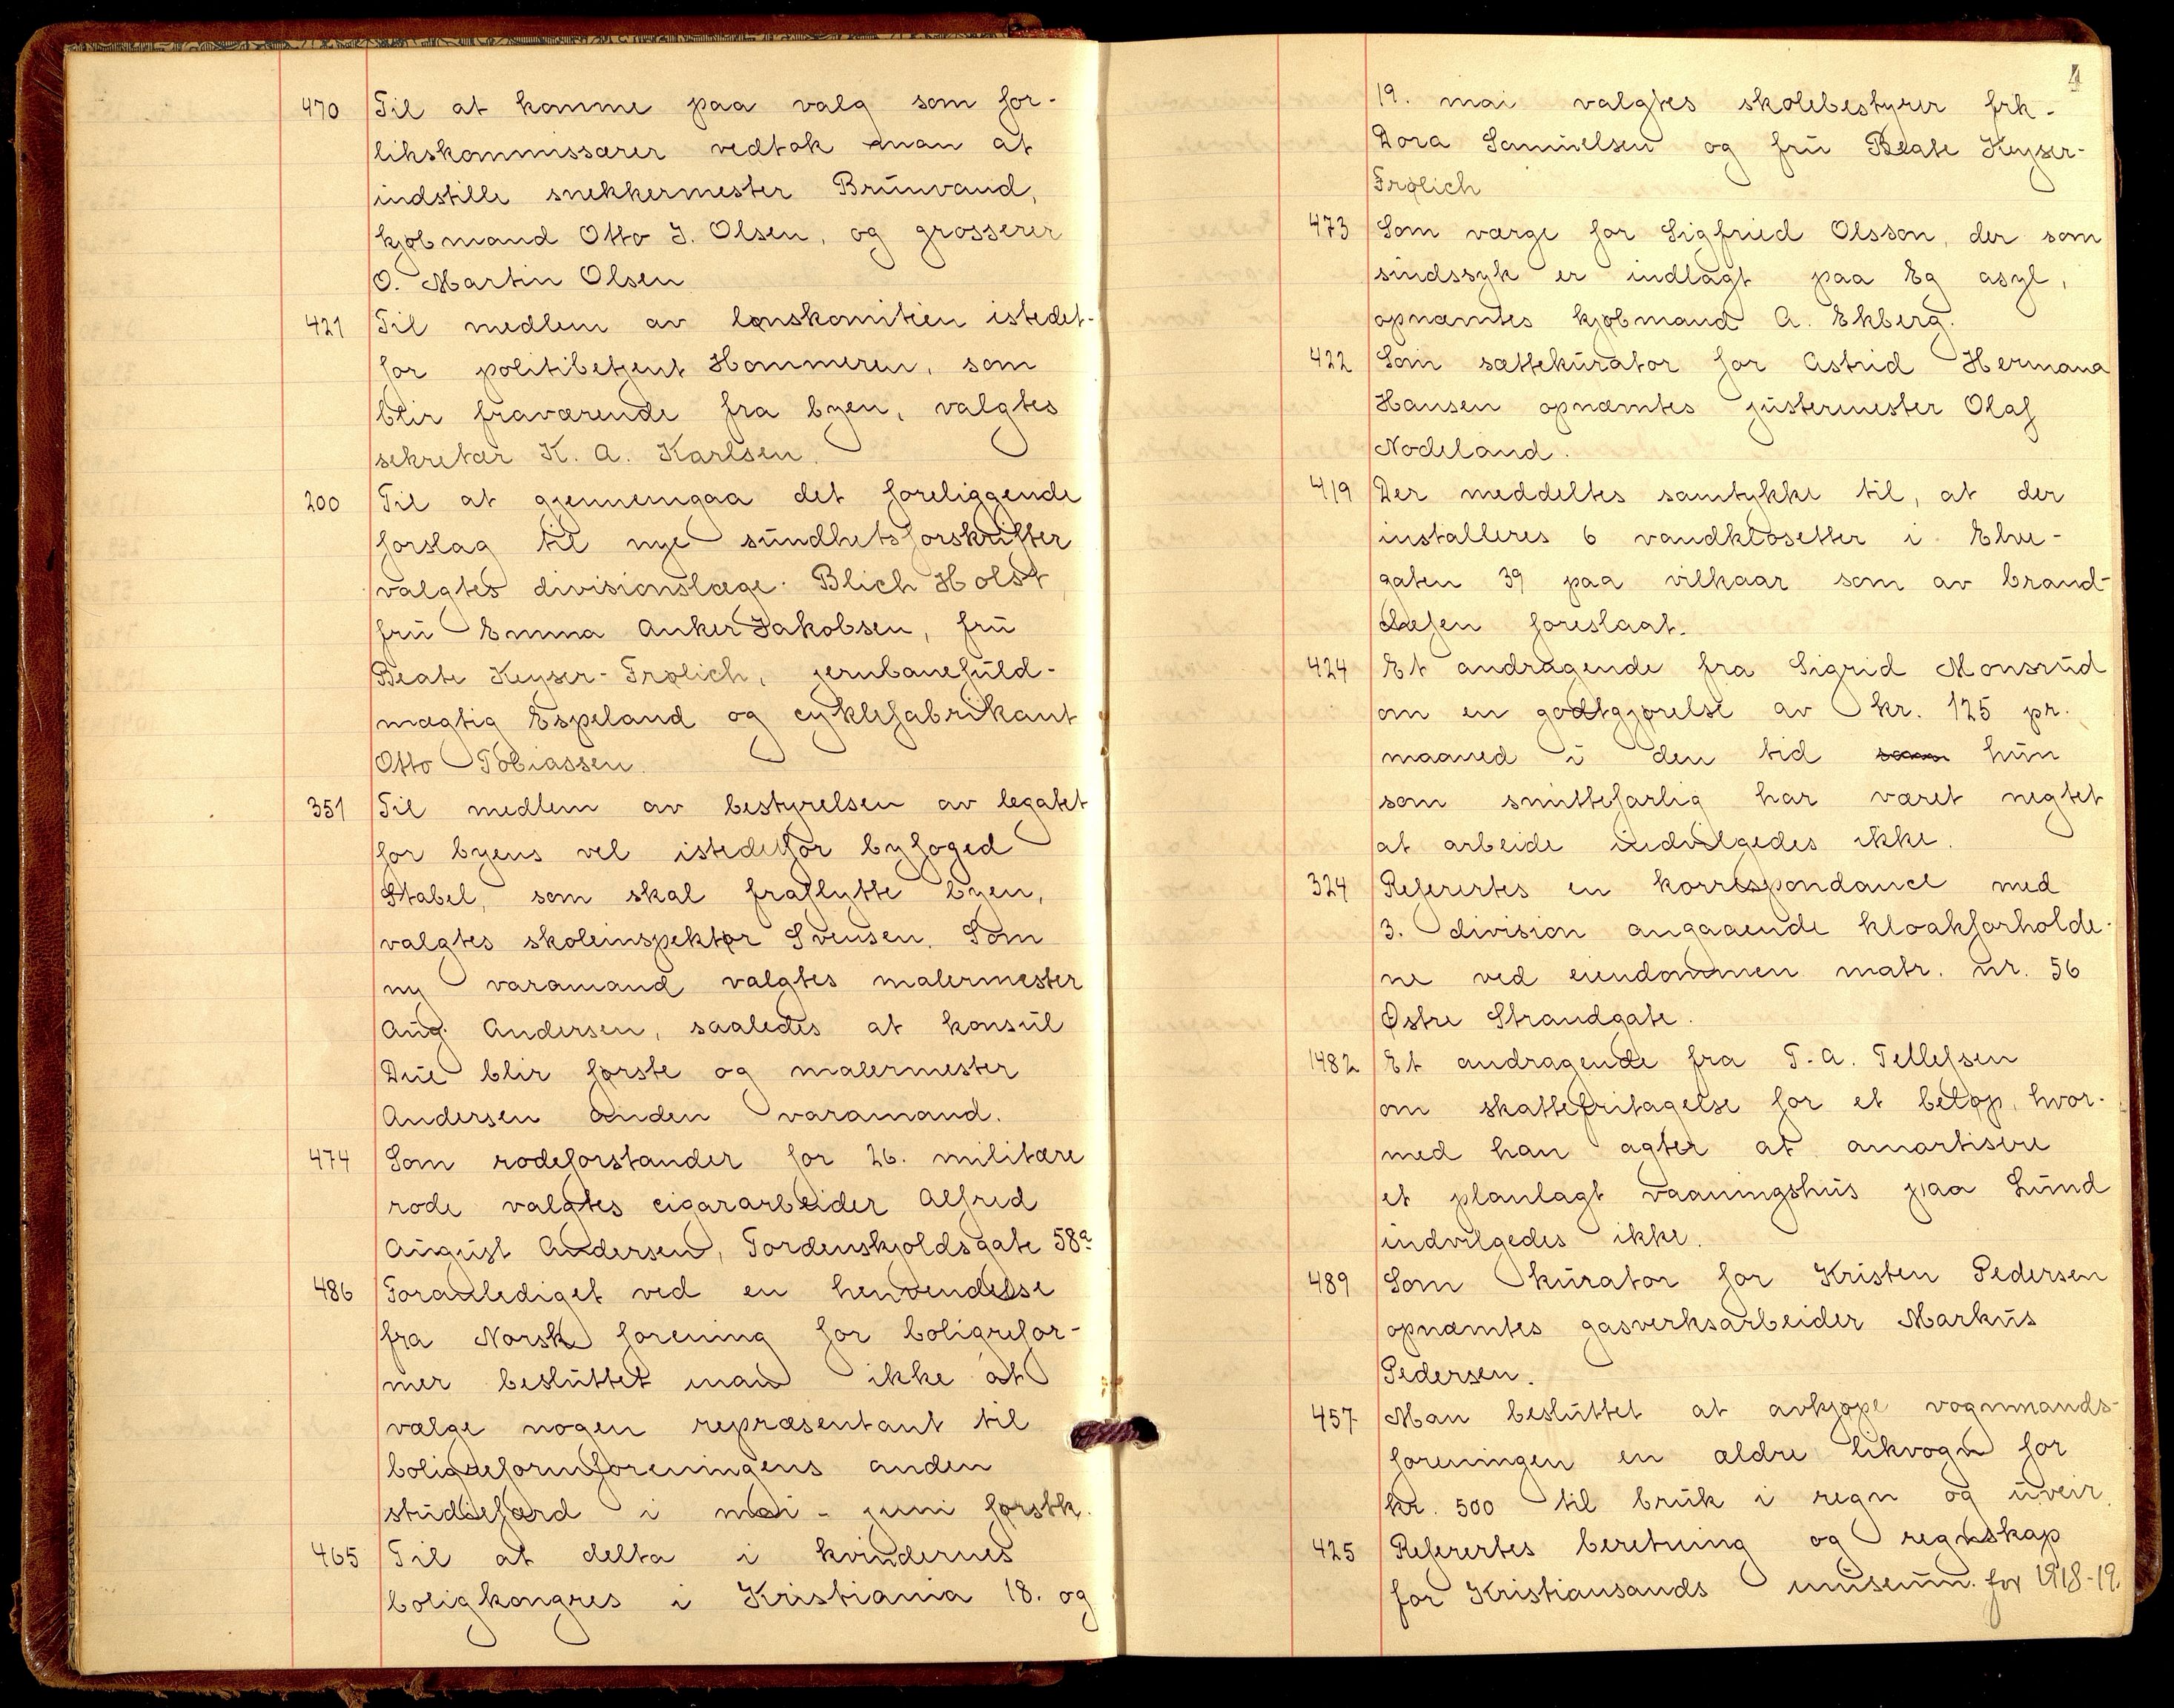 470 Til at komme paa valg som for-
likskommissærer vedtok man at
indstille snekkermester Brunvand,
kjøbmand Otto J. Olsen, og grosserer
O. Martin Olsen
421 Til medlem av lønskomitéen istedet-
for politibetjent Hommeren, som
blir fraværende fra byen, valgtes
sekretær K. A. Karlsen.
200 Til at gjennemgaa det foreliggende
forslag til nye sundhetsforskrifter
valgtes divisionslæge Blich Holst,
fru Emma Anker Jakobsen, fru
Beate Keyser-Frølich, jernbanefuld-
mægtig Espeland og cyklefabrikant
Otto Tobiassen.
351 Til medlem av bestyrelsen av legatet
for byens vel istedetfor byfoged
Stabel, som skal fraflytte byen,
valgtes skoleinspektør Svensen. Som
ny varamand valgtes malermester
Aug. Andersen, saaledes at konsul
Due blir første og malermester
Andersen anden varamand.
474 Som rodeforstander for 26. militære
rode valgtes cigararbeider Alfred
August Andersen, Tordenskjoldsgate 58a
486 Foranlediget ved en henvendelse
fra Norsk forening for boligrefor-
mer besluttet man ikke at
vælge nogen repræsentant til
boligreformforeningens anden
studiefærd i mai - juni førstk.
465 Til at delta i kvindernes
boligkongres i Kristiania 18. og
4
19. mai valgtes skolebestyrer frk.
Dora Samuelsen og fru Beate Keyser-
Frølich
473 Som værge for Sigfried Olsson, der som
sindssyk er indlagt paa Eg asyl,
opnæmtes kjøbmand A. Ekberg.
422 Som sættekurator for Astrid Hermana
Hansen opnæmtes justermester Olaf
Nodeland.
419 Der meddeltes samtykke til, at der
installeres 6 vandklosetter i Elve-
gaten 39 paa vilkaar som av brand-
chefen foreslaat.
424 Et andragende fra Sigrid Monsrud
om en godtgjørelse av kr. 125 pr.
maaned i den tid som hun
som smittefarlig har været negtet
at arbeide indvilgedes ikke.
324 Referertes en korrespondance med
3. division angaaende kloakforholde-
ne ved eiendommen matr. nr. 56
Østre Strandgate.
1482 Et andragende fra T. A. Tellefsen
om skattefritagelse for et beløp, hvor-
med han agter at amortisere
et planlagt vaaningshus paa Lund
indvilgedes ikke.
489 Som kurator for Kristen Pedersen
opnæmtes gasverksarbeider Markus
Pedersen.
457 Man besluttet at avkjøpe vognmands-
foreningen en ældre likvogn for
kr. 500 til bruk i regn og uveir.
425 Referertes beretning og regnskap
for Kristiansands museum for 1918-19.